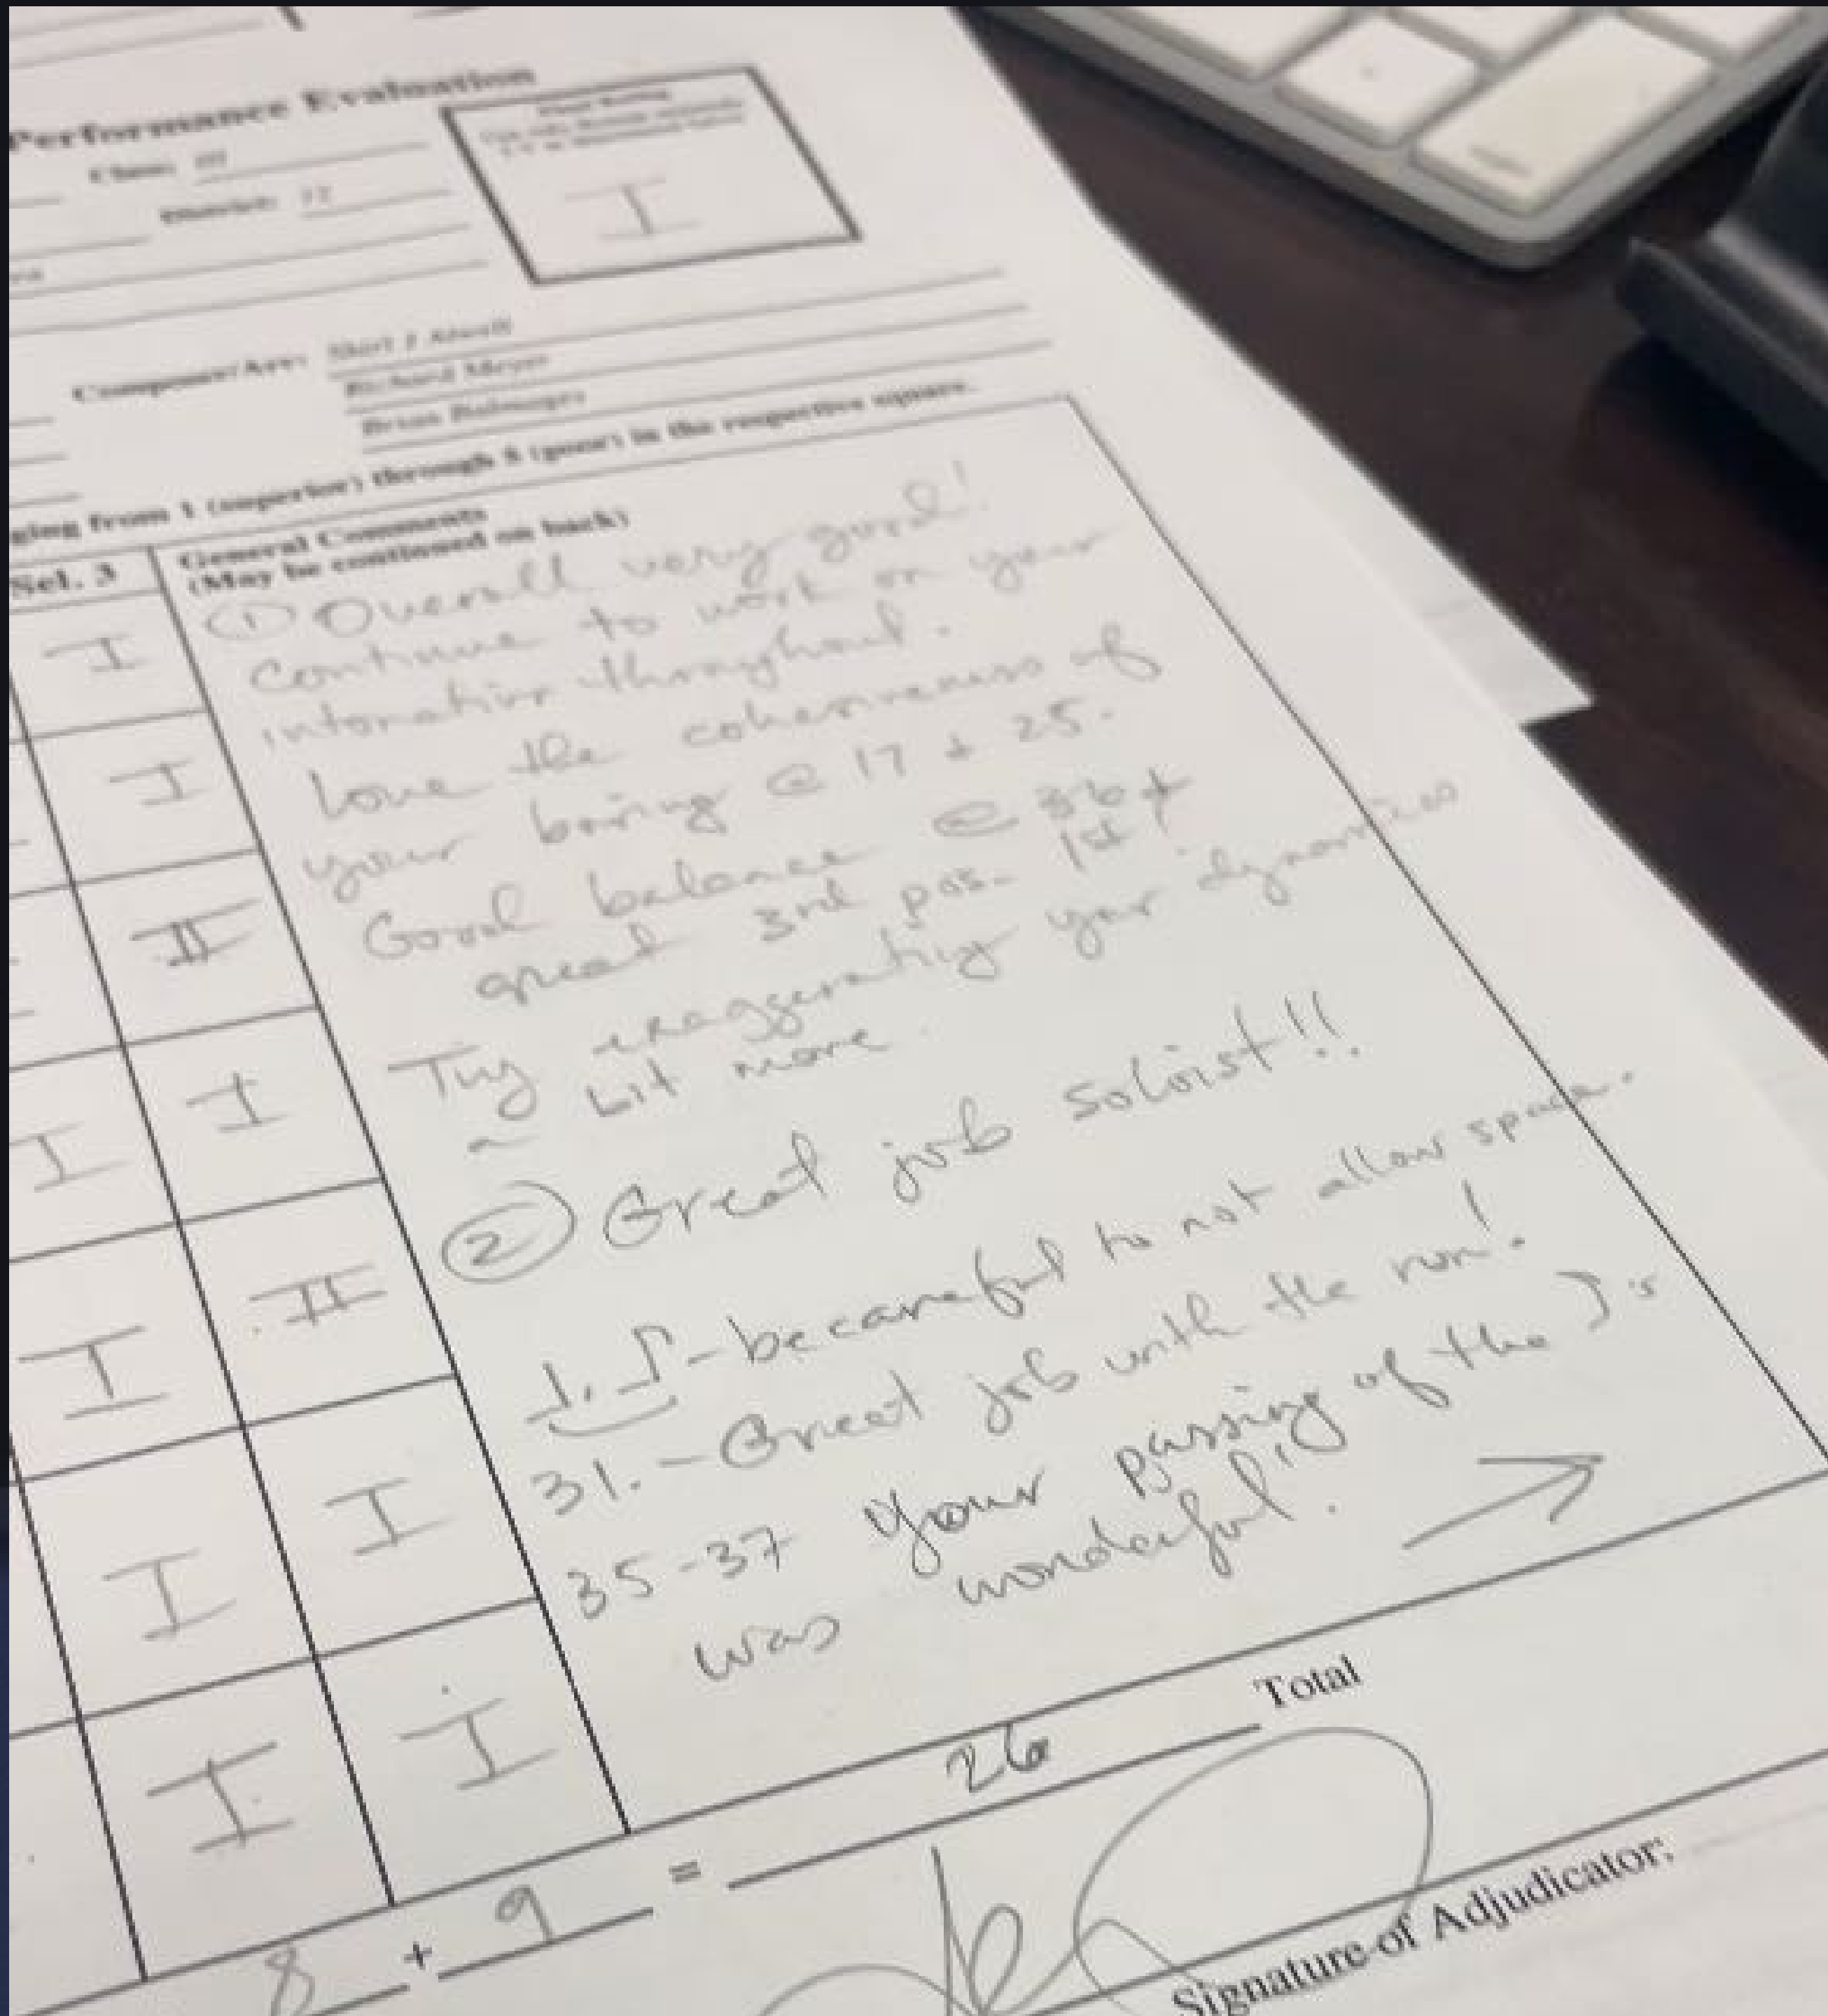 Performance Evaluation
Class: III
District: 12
Final Rating
I
Composer/Arr: Shirl J Atwell
Richard Meyer
Brian Balmages
ging from 1 (superior) through 5 (poor) in the respective square.
Sel. 3
General Comments
(May be continued on back)
I
I
II
I
I
II
I
I
I
I
I
① Overall very good!
Continue to work on your
intonation throughout.
Love the cohesiveness of
your bowing @ 17 + 25.
Good balance @ 36 +
great 3rd pos. 1st
Try exaggerating your dynamics
a bit more.
② Great job soloist!!
- be careful to not allow space.
31. - Great job with the run!
35-37 your passing of the ♪'s
was wonderful!
8 + 9 = 26 Total
Signature of Adjudicator: